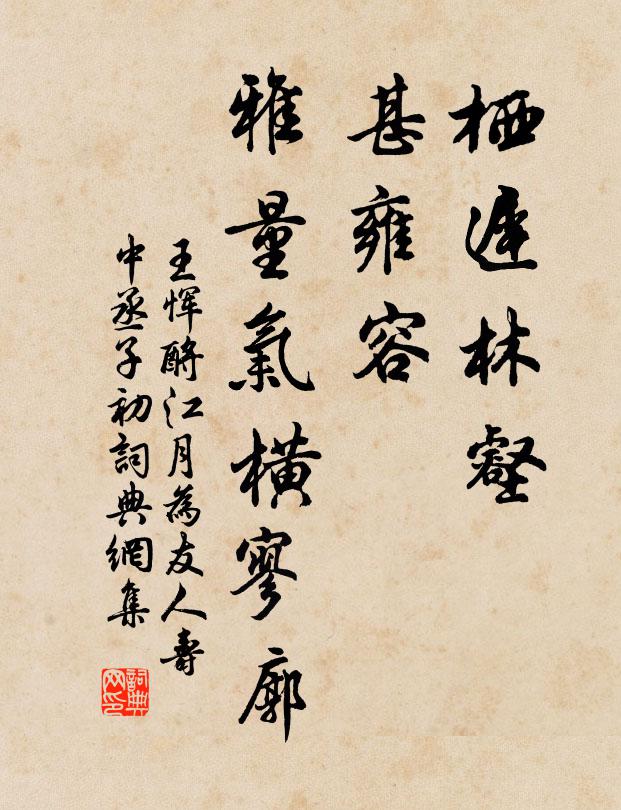 栖遲林壑
甚雍容
雅量氣橫寥廓
王惲酹江月為友人壽
中丞子初詞典網集
詞典網印